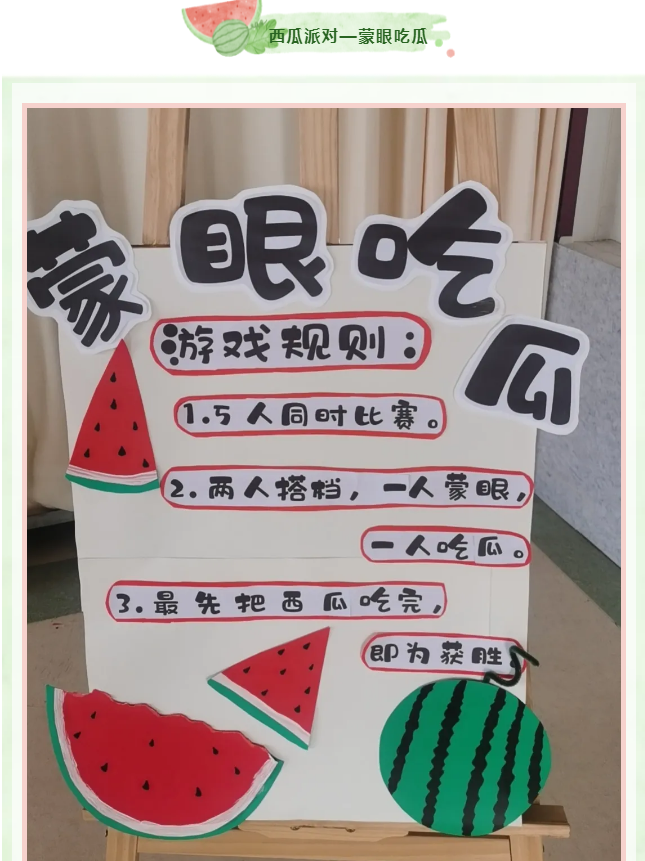 西瓜派对—蒙眼吃瓜
蒙眼吃瓜
游戏规则：
1.5人同时比赛。
2.两人搭档，一人蒙眼，
一人吃瓜。
3.最先把西瓜吃完，
即为获胜